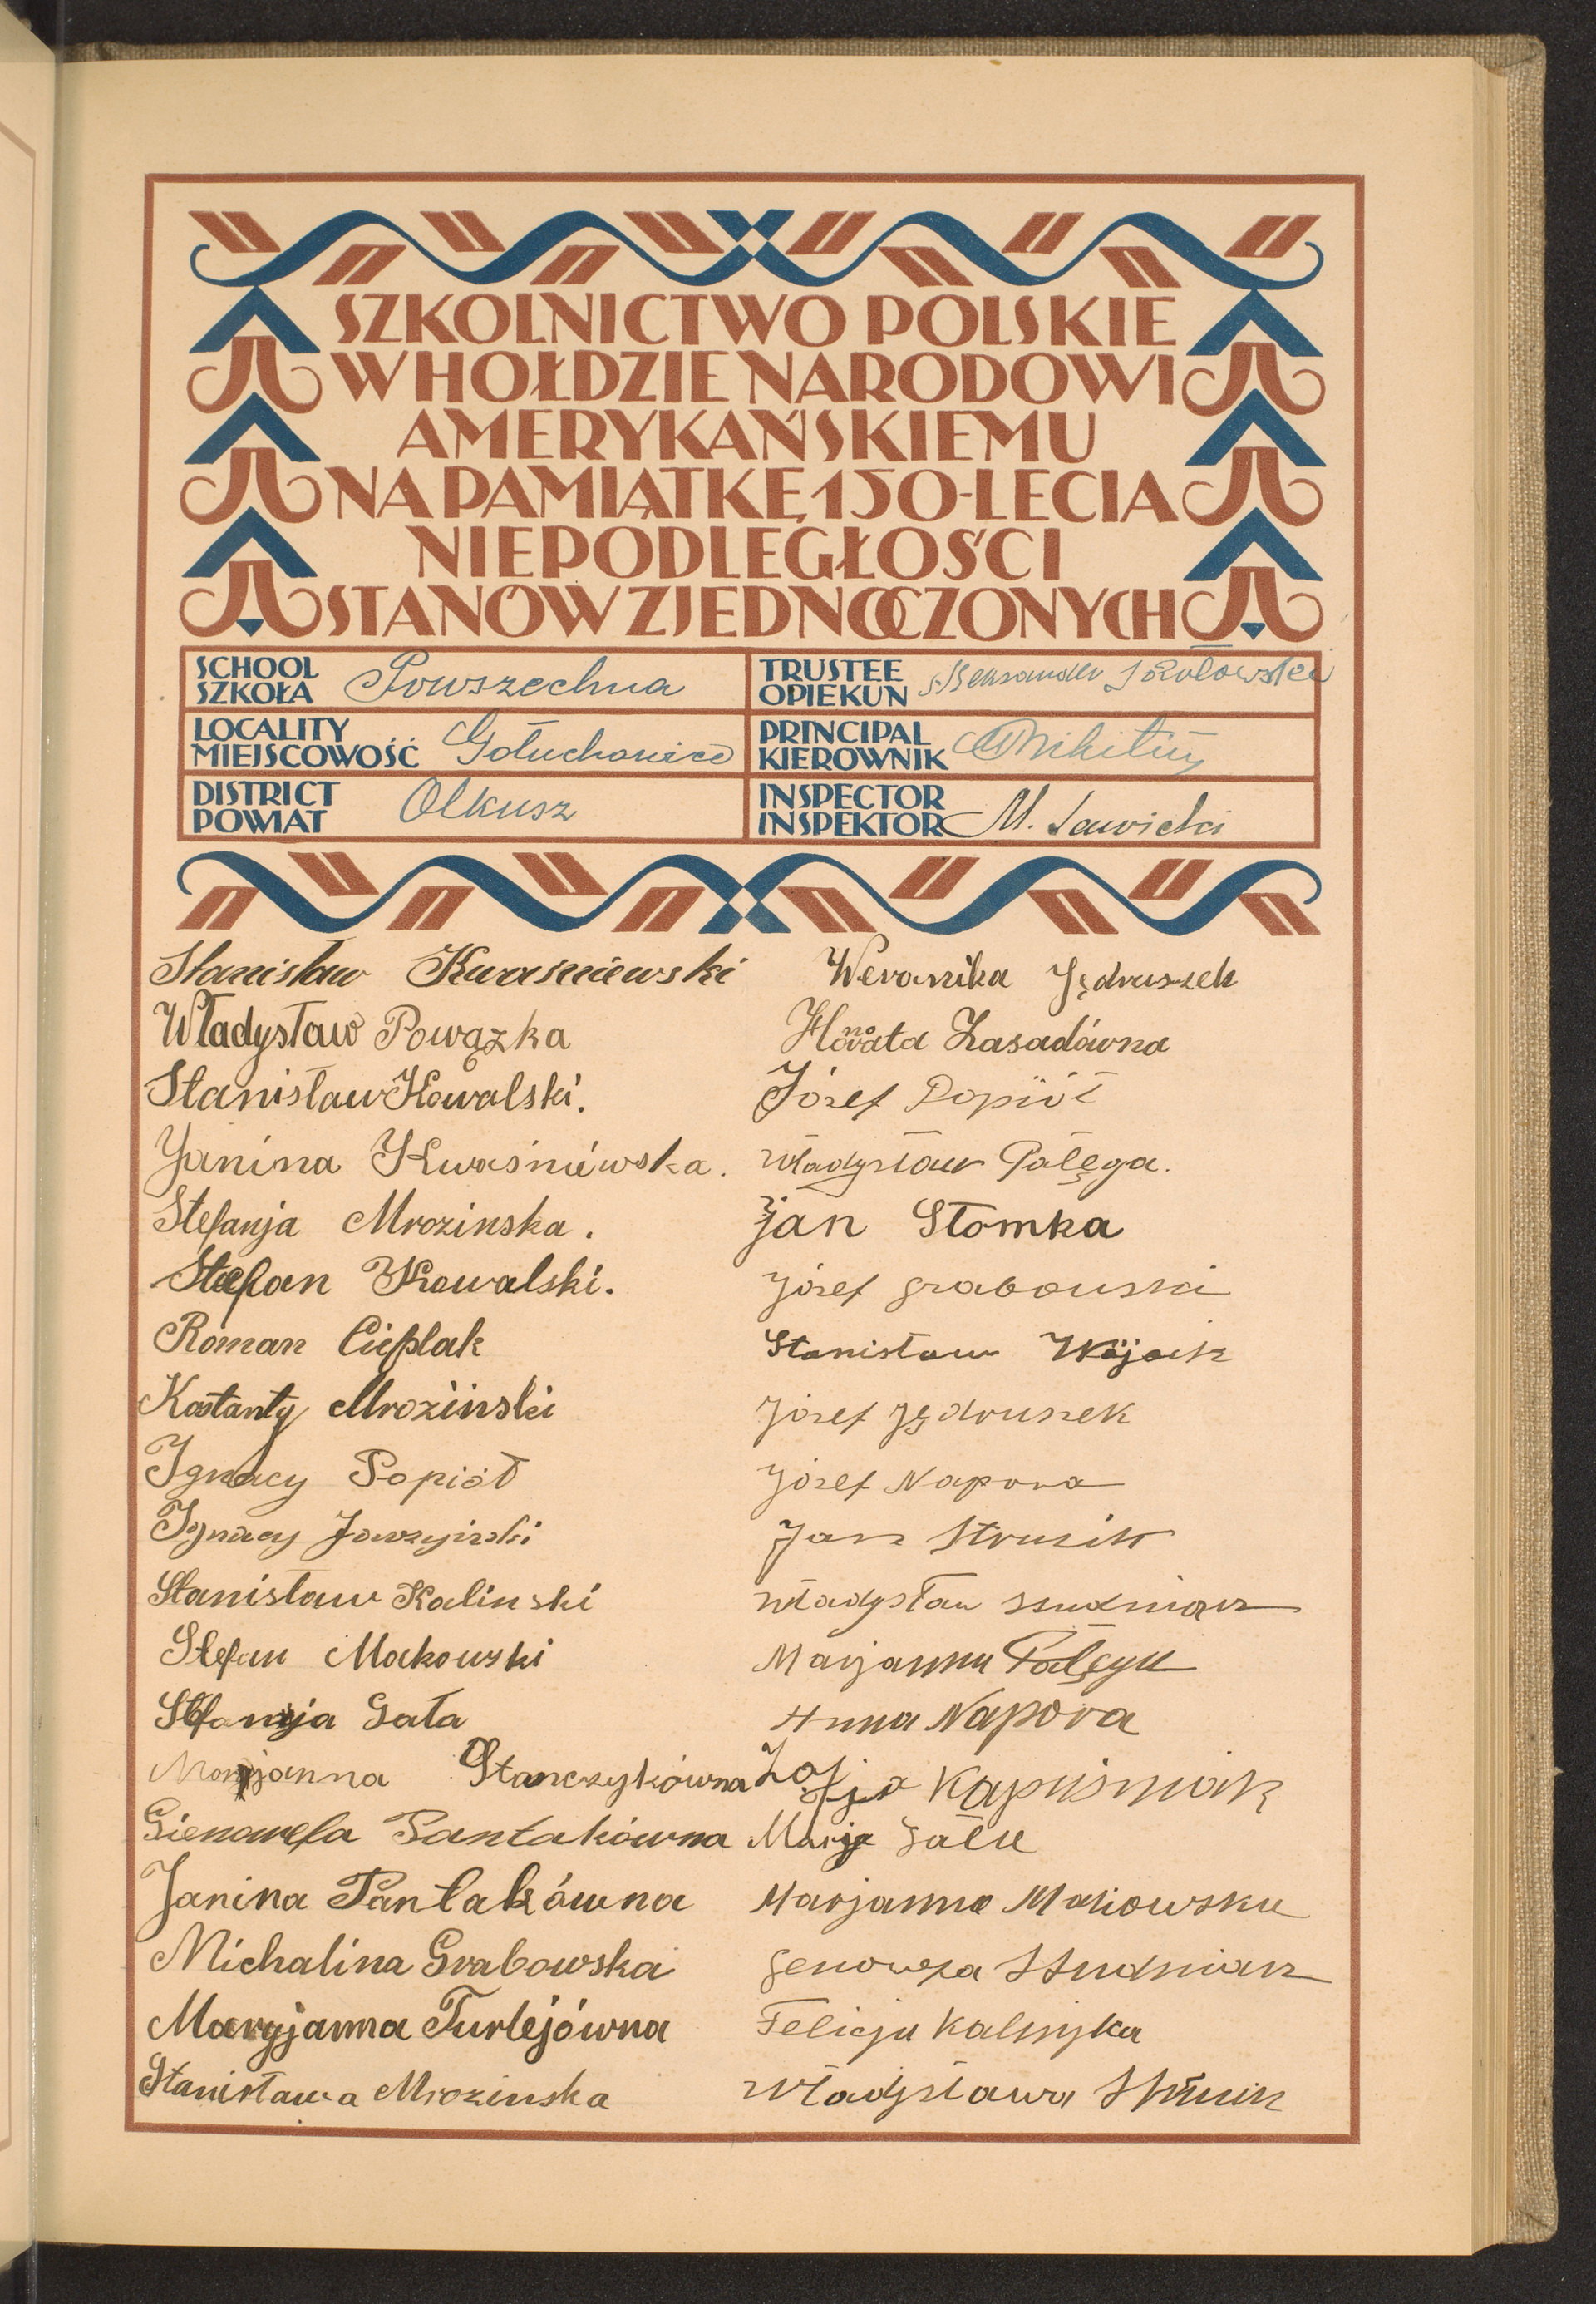 SZKOLNICTWO POLSKIE
W HOŁDZIE NARODOWI
AMERYKAŃSKIEMU
NA PAMIĄTKĘ 150-LECIA
NIEPODLEGŁOŚCI
STANÓW ZJEDNOCZONYCH
SCHOOL
SZKOŁA Powszechna
TRUSTEE
OPIEKUN Aleksander Sokołowski
LOCALITY
MIEJSCOWOŚĆ Gołuchowice
PRINCIPAL
KIEROWNIK
DISTRICT
POWIAT Olkusz
INSPECTOR
INSPEKTOR M. Sawicki
Stanisław Kwaśniewski
Władysław Powązka
Stanisław Kowalski.
Janina Kwaśniewska.
Stefanja Mrozinska.
Stefan Kowalski.
Roman Cieplak
Kostanty Mroziński
Ignacy Popiół
Ignacy Jawrzyński
Stanisław Kalinski
Stefan Makowski
Stefanija Gała
Marjanna Stanczykówna
Gienowefa Pantakówna
Janina Pantakówna
Michalina Grabowska
Maryjanna Turlejówna
Stanisława Mrozinska
Weronika Jędruszek
Honorata Zasadówna
Józef Popiół
Władysław Pałęga.
Jan Słomka
Józef Grabowski
Stanisław Wójcik
Józef Jędruszek
Józef Napora
Jan Strusik
Władysław
Marjanna Pałęga
Anna Napora
Zofja Kapuśniak
Marja Gałka
Marjanna Makowska
Genowefa
Felicja Kalinyka
Władysława